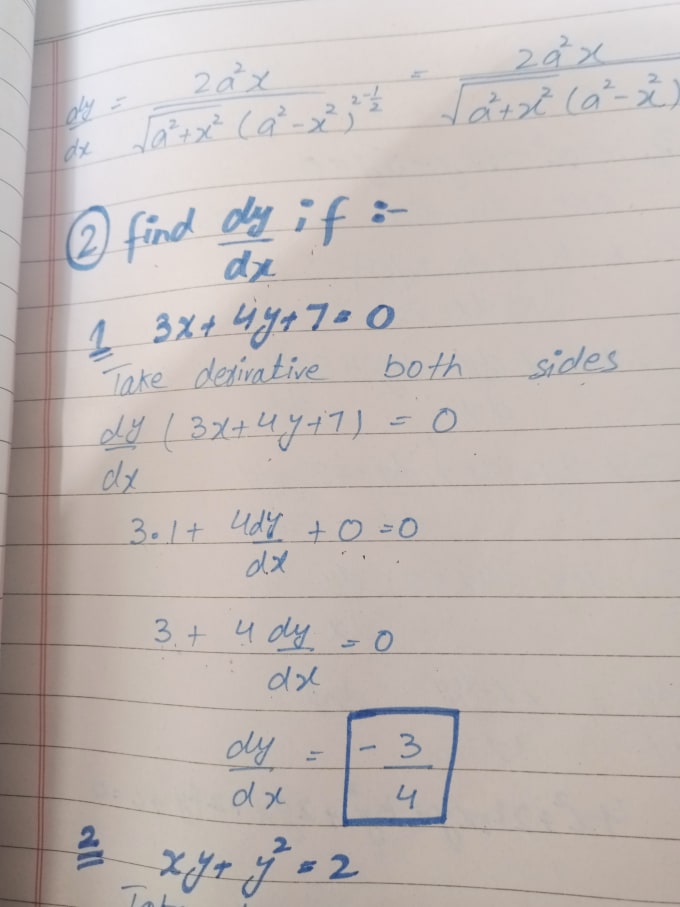 dy/dx = 2a²x / √(a²+x²) (a²-x²)^(2-1/2) = 2a²x / √(a²+x²) (a²-x²)
② find dy/dx if :-
1 3x+4y+7=0
Take derivative both sides
dy/dx (3x+4y+7) = 0
3.1+ 4dy/dx +0=0
3 + 4 dy/dx = 0
dy/dx = -3/4
2 xy+y²=2